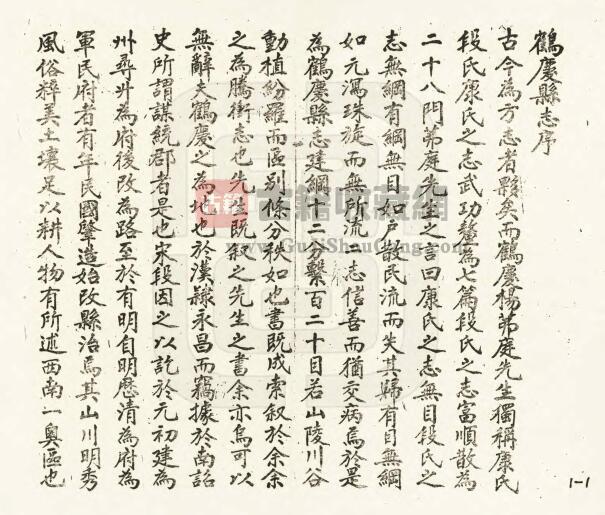 鶴慶縣志序
古今為方志者夥矣而鶴慶楊茀庭先生獨稱康氏
段氏康氏之志武功釐為七篇段氏之志富順散為
二十八門茀庭先生之言曰康氏之志無目段氏之
志無綱有綱無目如戶散民流而失其歸有目無綱
如元瀉珠旋而無所流二志信善而猶交病焉於是
為鶴慶縣志建綱十二分繫百二十目若山陵川谷
動植紛羅而區別條分秩如也書既成索叙於余余
之為騰衝志也先生既叙之先生之書余亦烏可以
無辭夫鶴慶之為地也於漢隸永昌而竊據於南詔
史所謂謀統郡者是也宋段因之以訖於元初建為
州尋升為府後改為路至於有明自明歷清為府為
軍民府者有年民國肇造始改縣治焉其山川明秀
風俗粹美土壤足以耕人物有所述西南一奧區也
1-1
古籍
www.GuJiShuCang.com